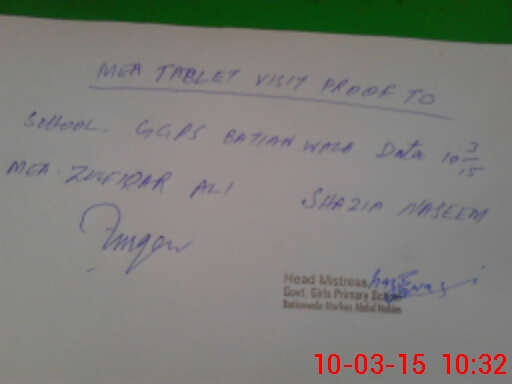 MEA TABLET VISIT PROOF TO
SCHOOL. GGPS BATIAN WALA Data 10 3/15
MEA. ZULFIQAR ALI SHAZIA NASEEM
Head Mistress
Govt. Girls Primary School
Batianwala Markaz Abdul Hakim
10-03-15 10:32